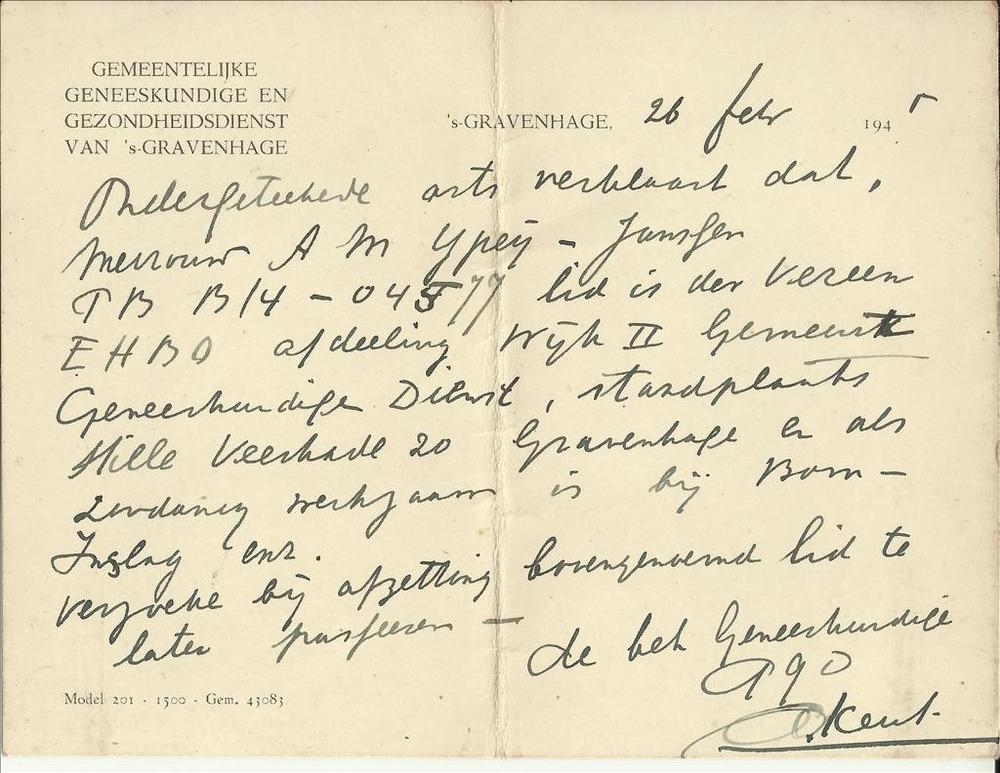 GEMEENTELIJKE
GENEESKUNDIGE EN
GEZONDHEIDSDIENST
VAN 's-GRAVENHAGE
's-GRAVENHAGE, 26 febr 1945
Ondergeteekende arts verklaart dat,
Mevrouw A M Ypeij - Janssen
TB B/4 - 04577 lid is der Vereen
EHBO afdeeling Wijk II Gemeent
Geneeskundige Dienst, standplaats
Stille Veerkade 20 Gravenhage en als
zoodanig werkzaam is bij Bom-
Inslag enz.
verzoeke bij afzetting bovengenoemd lid te
laten passeeren -
de beh Geneeskundige
Kent
Model 201 - 1500 - Gem. 43083